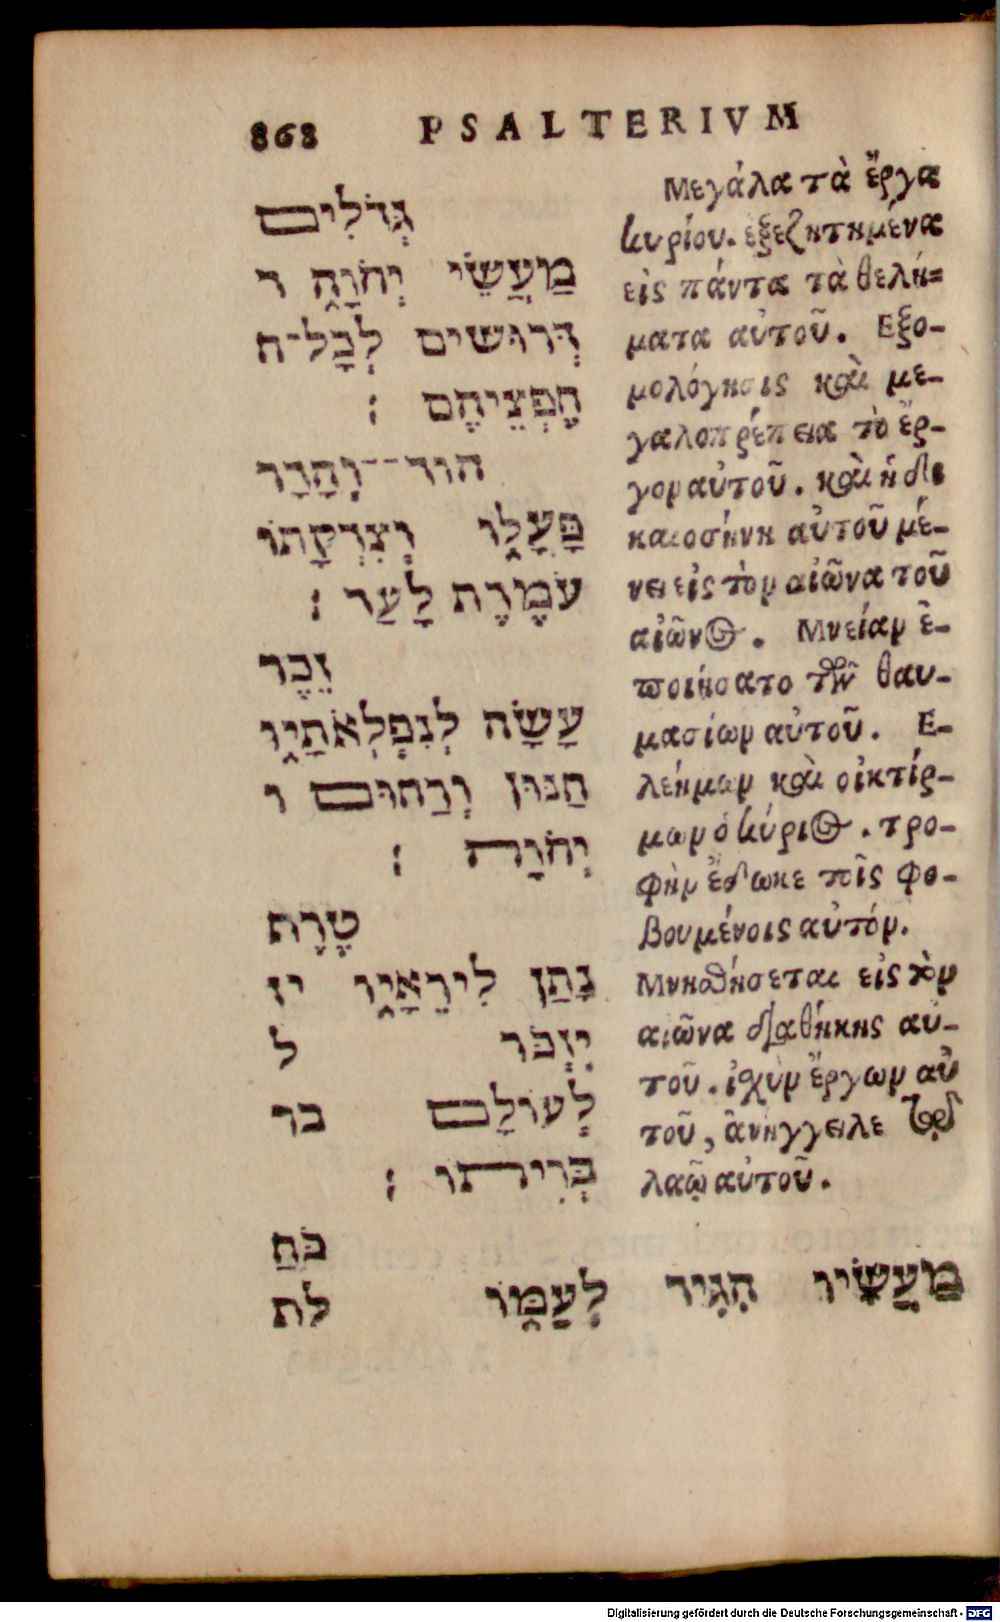 868 PSALTERIVM
גְּדֹלִים
מַעֲשֵׂי יְהֹוָה ר
דְּרוּשִׁים לְכָל־ח
חֶפְצֵיהֶם :
הוד־־וְהָדָר
פָּעֳלֽוֹ וְצִדְקָתוֹ
עֹמֶדֶת לָעַד :
זֵכֶר
עָשָׂה לְנִפְלְאֹתָיו
חַנּוּן וְרַחוּם ו
יְהֹוָה :
טֶרֶת
נָתַן לִירֵאָיו יז
יִזְכֹּר ל
לְעוֹלָם בר
בְּרִיתוֹ :
כֹּחַ
מַעֲשָׂיו הִגִּיד לְעַמּוֹ לת
Μεγάλα τὰ ἔργα
κυρίου. ἐξεζητημένα
εἰς πάντα τὰ θελή=
ματα αὐτοῦ. Εξο-
μολόγησις καὶ με-
γαλοπρέπεια τὸ ἔρ-
γον αὐτοῦ. καὶ ἡ δι
καιοσήνη αὐτοῦ μέ-
νει εἰς τὸν αἰῶνα τοῦ
αἰῶνος. Μνείαν ἐ-
ποιήσατο τῶν θαυ-
μασίων αὐτοῦ. Ε-
λεήμων καὶ οἰκτίρ-
μων ὁ κύριος. τρο-
φὴν ἔδωκε τοῖς φο-
βουμένοις αὐτόν.
Μνηθήσεται εἰς τὸν
αιῶνα διαθήκης αὐ-
τοῦ. ἰχὺν ἔργων αὐ
τοῦ, ἀνήγγειλε τῷ
λαῷ αὐτοῦ.
Digitalisierung gefördert durch die Deutsche Forschungsgemeinschaft - DFG